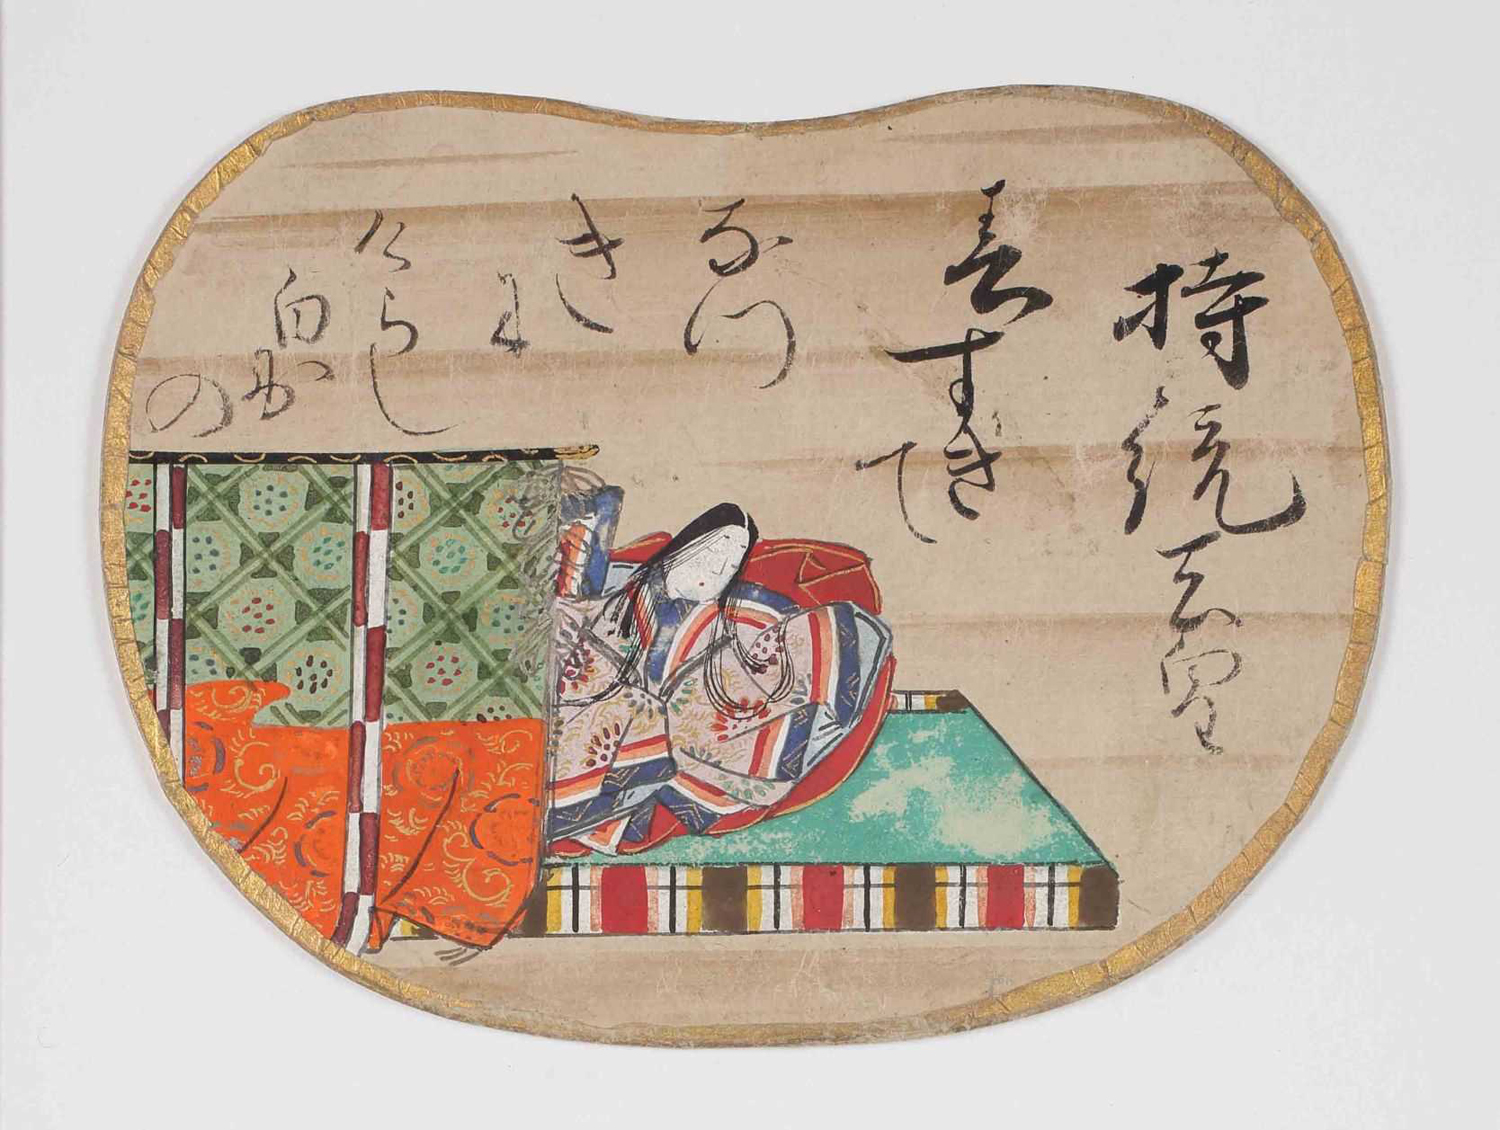 持統天皇
春すき
て
なつ
き
に
けらし
白妙
の